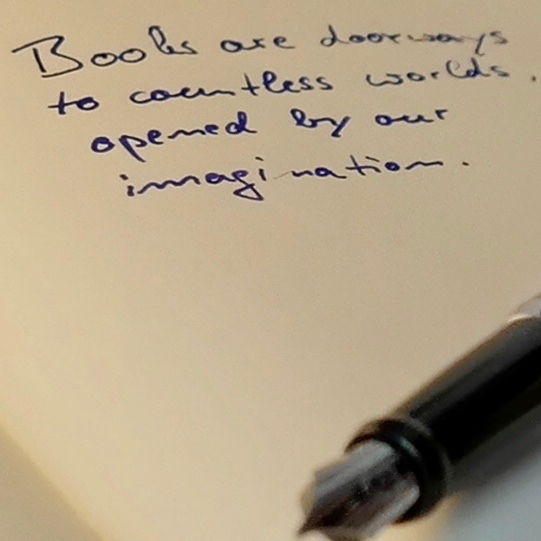 Books are doorways
to countless worlds.
opened by our
imagination.